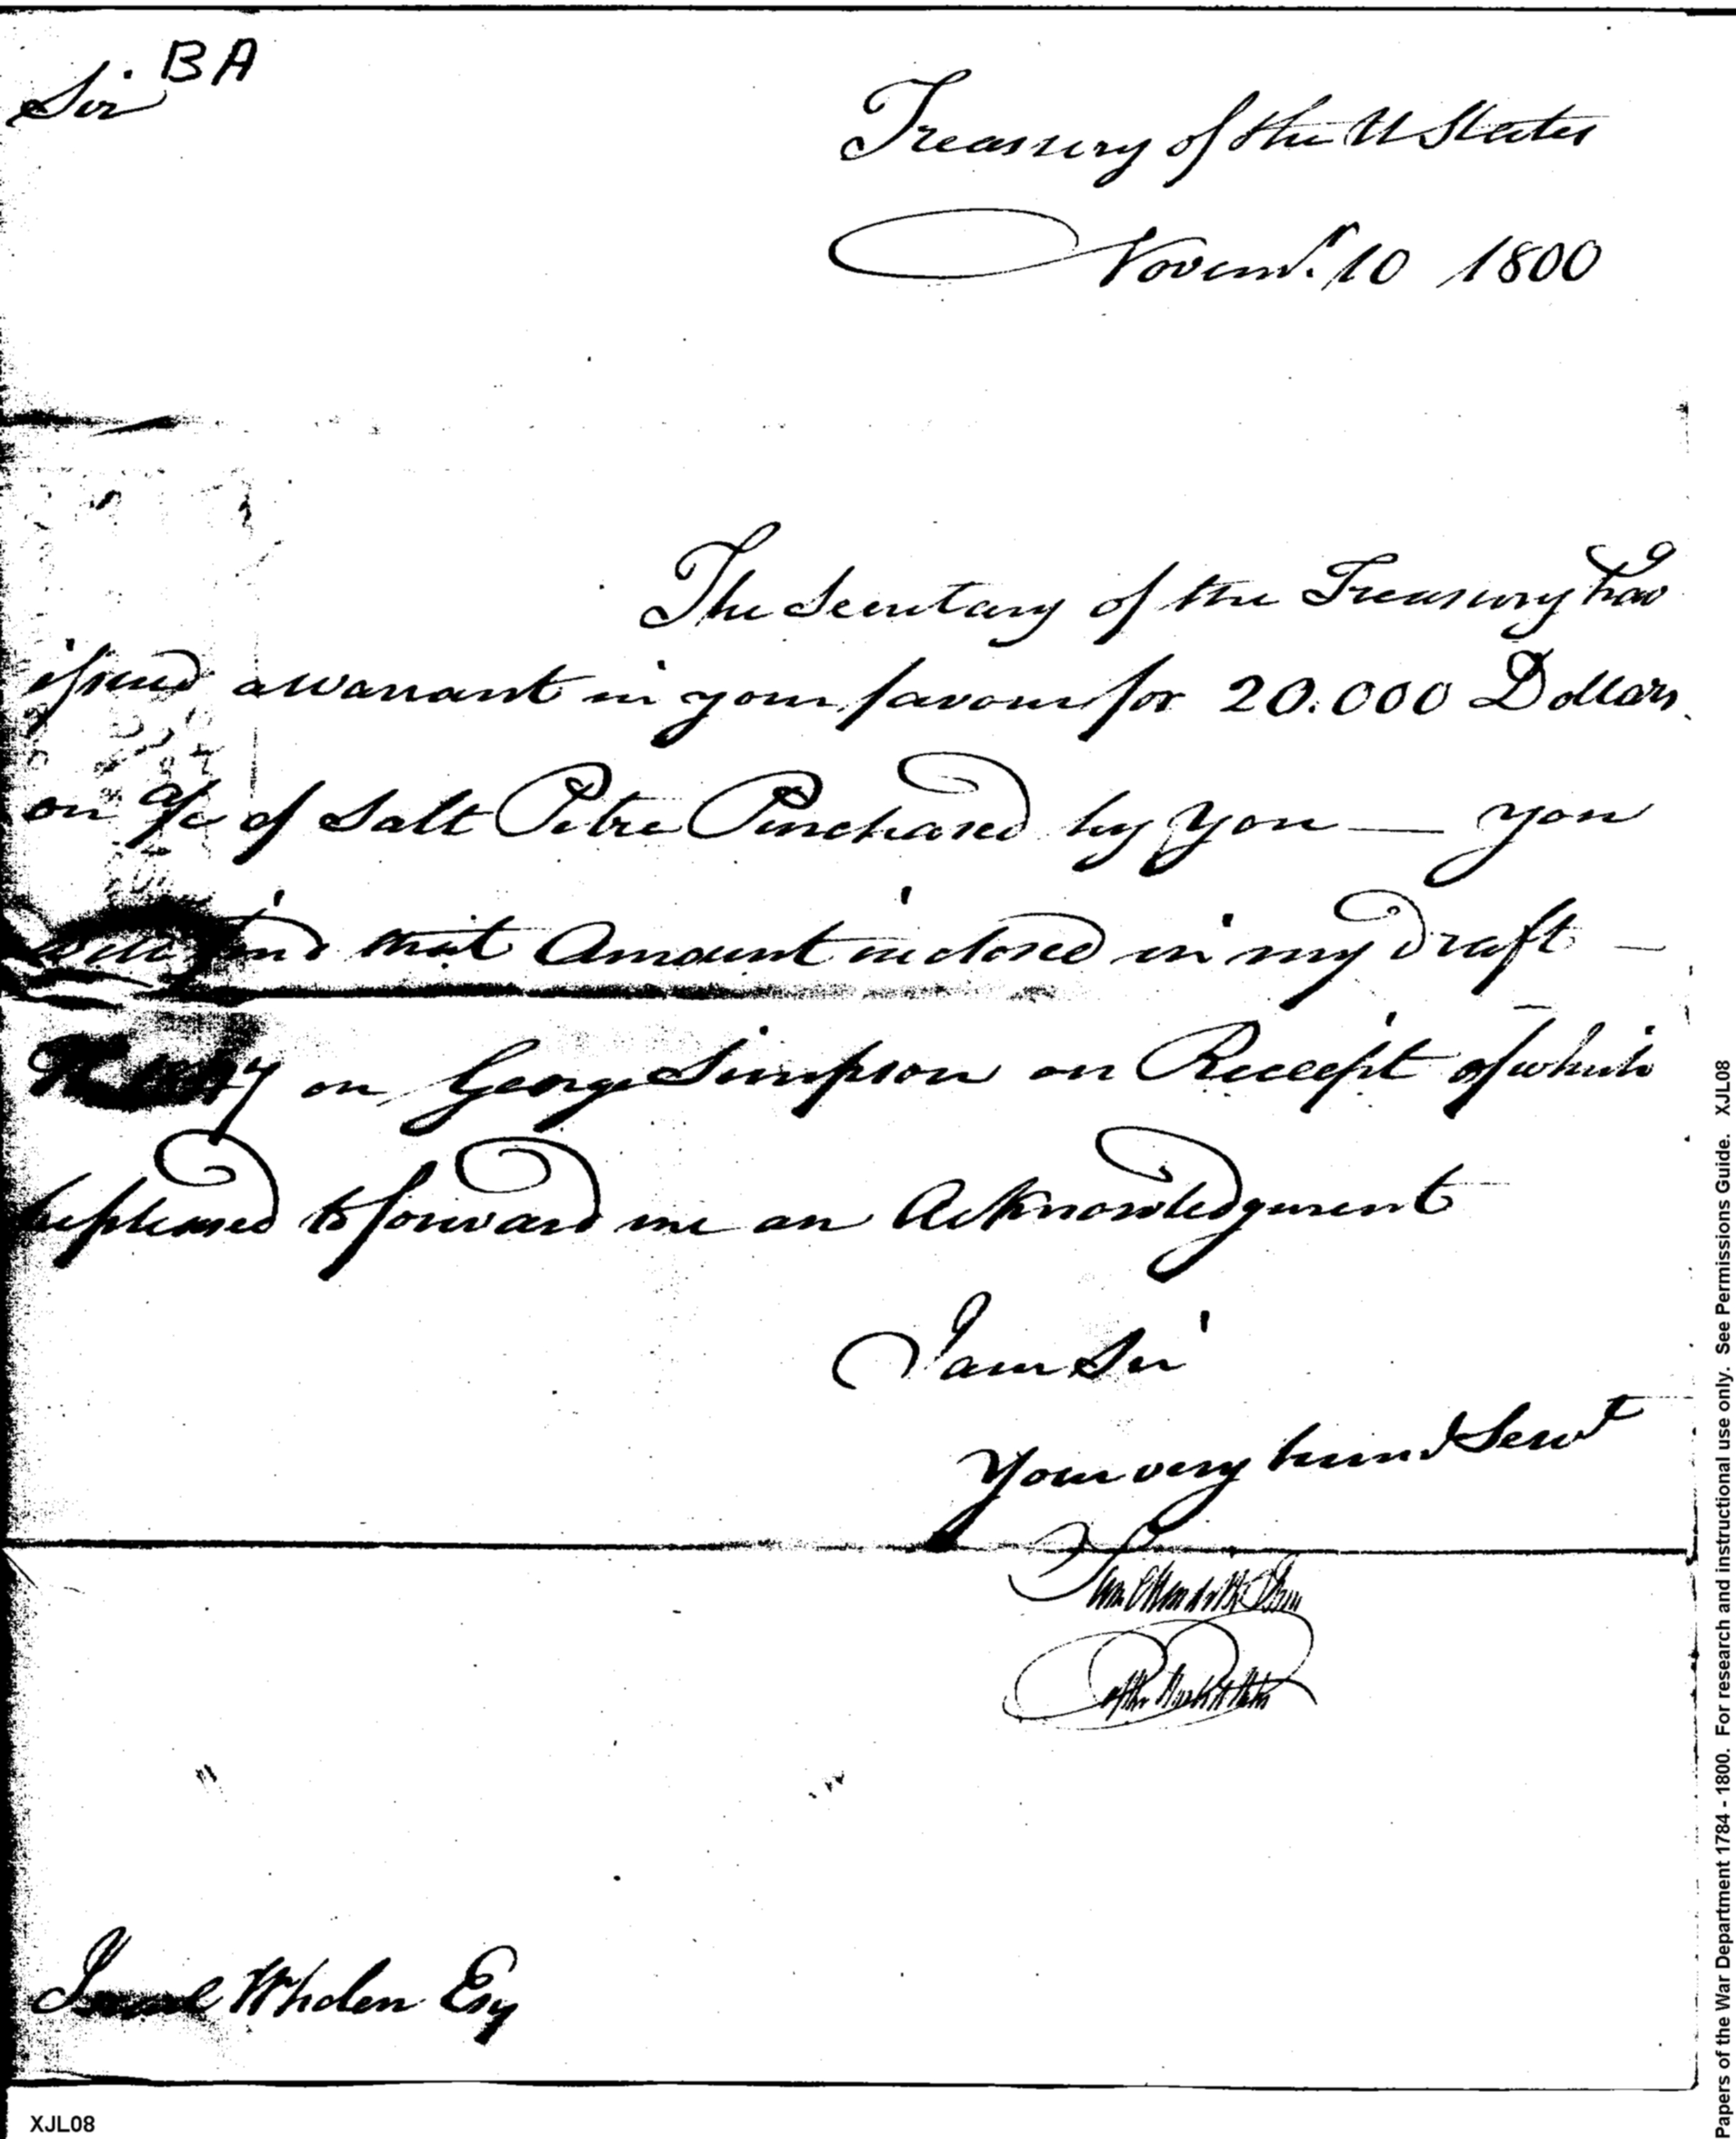 BA
Sir
Treasury of the U States
Novemr. 10 1800
The Secretary of the Treasury has
issued a Warrant in your favour for 20.000 Dollars
on a/c of Salt Petre Purchased by You — you
will find that Amount inclosed in my Draft —
on George Simpson on Receipt of which
be pleased to forward me an Acknowledgment
I am Sir
Your very hum Servt
Sam Meredith Treas
of the United States
Israel Whelen Esq
XJL08
Papers of the War Department 1784 - 1800. For research and instructional use only. See Permissions Guide. XJL08